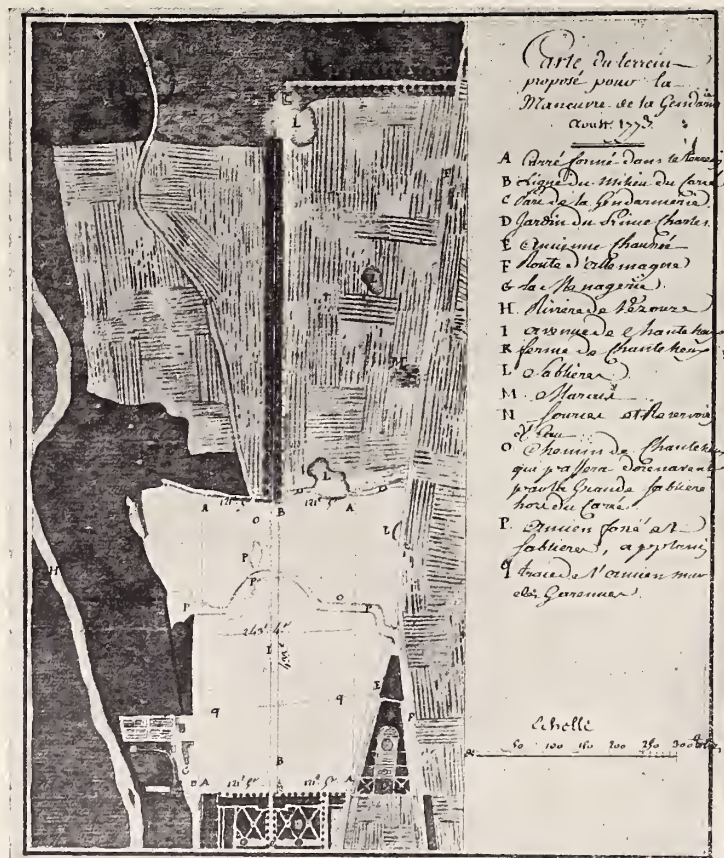 Carte du terrein
proposé pour la
Manœuvre de la Gendarm
Aoust 1773.
A Carré formé dans le
B Ligne du Milieu du Carré
C Parc de la Gendarmerie
D Jardin du Prince Charles
E Ancienne Chaussée
F Route d'allemagne
G la Menagerie
H Riviere de Vézouze
I avenue de Chanteheu
K ferme de Chanteheu
L Sablieres
M Marais
N Sources et Reservoirs
d'Eau
O Chemin de Chanteheu
qui passera dorenavant
par la Grande Sabliere
hors du Carré
P Ancien fossé et
Sablieres, applanis
q trace de l'ancien mur
des Garennes
Echelle
50 100 150 200 250 300
L
F
M
L
L
A B A
O
L
P
P
H
P O P
I
E
q q
F
B
G
A A